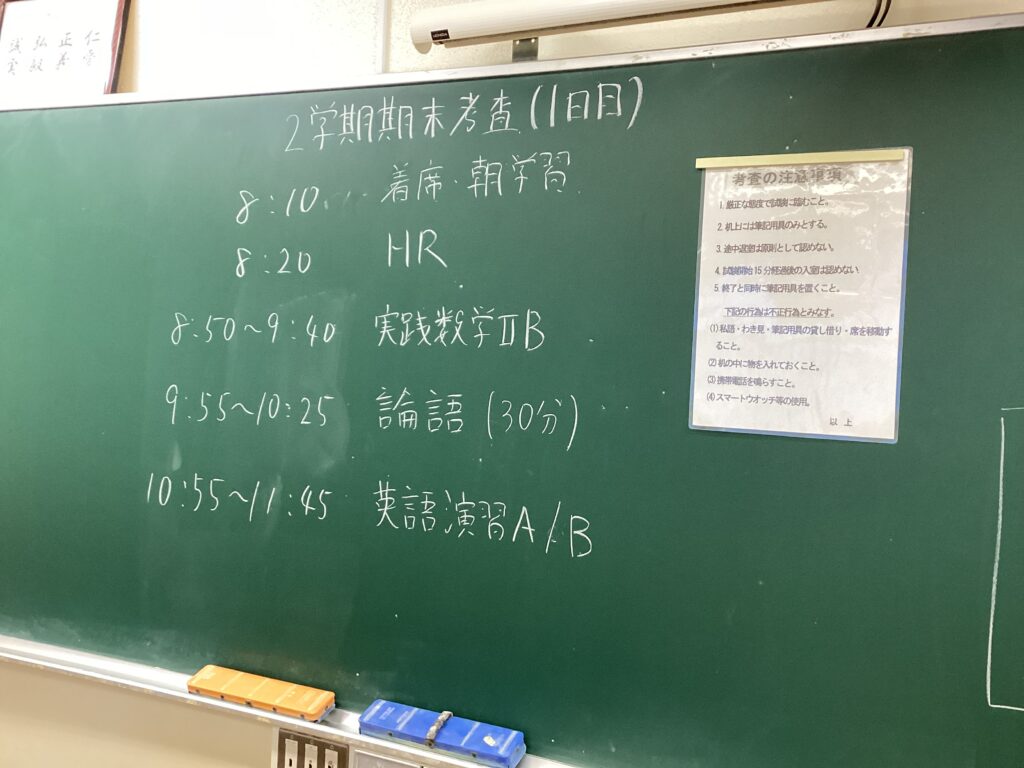 2学期期末考査(1日目)
8:10 着席・朝学習
8:20 HR
8:50~9:40 実践数学ⅡB
9:55~10:25 論語(30分)
10:55~11:45 英語演習A/B
考査の注意事項
1. 厳正な態度で試験に臨むこと。
2. 机上には筆記用具のみとする。
3. 途中退室は原則として認めない。
4. 試験開始15分経過後の入室は認めない
5. 終了と同時に筆記用具を置くこと。
下記の行為は不正行為とみなす。
(1) 私語・わき見・筆記用具の貸し借り・席を移動す
ること。
(2) 机の中に物を入れておくこと。
(3) 携帯電話を鳴らすこと。
(4) スマートウオッチ等の使用。
以上